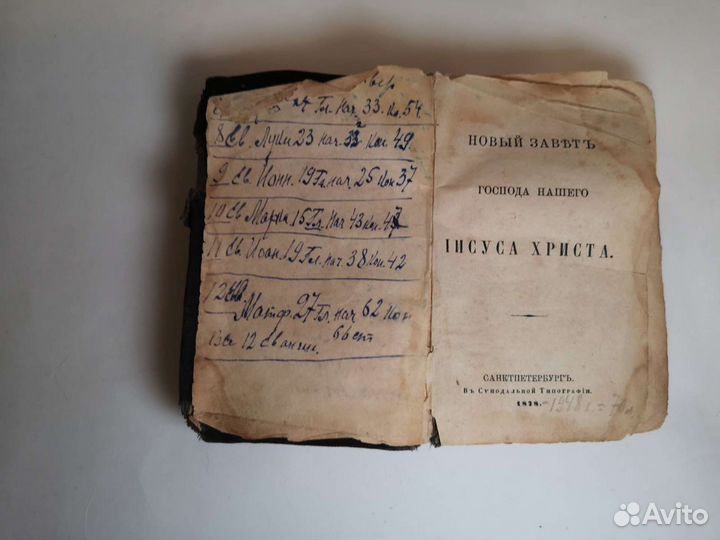 Гл. нач. 33. Кон. 54
8 Ев. Луки 23 нач. 32 Кон. 49
9 Ев. Иоан. 19 Гл. нач 25 Кон 37
10 Ев Марка 15 Гл. нач 43 Кон. 47
11 Ев. Иоан. 19 Гл. нач. 38 Кон. 42
12 Ев.
Матф. 27 Гл. нач 62 Кон
66 ст
12 Еванги.
НОВЫЙ ЗАВѢТЪ
ГОСПОДА НАШЕГО
ІИСУСА ХРИСТА.
САНКТПЕТЕРБУРГЪ.
Въ Сѵнодальной Типографіи.
1878. - 1948 г. = 70 л
Avito